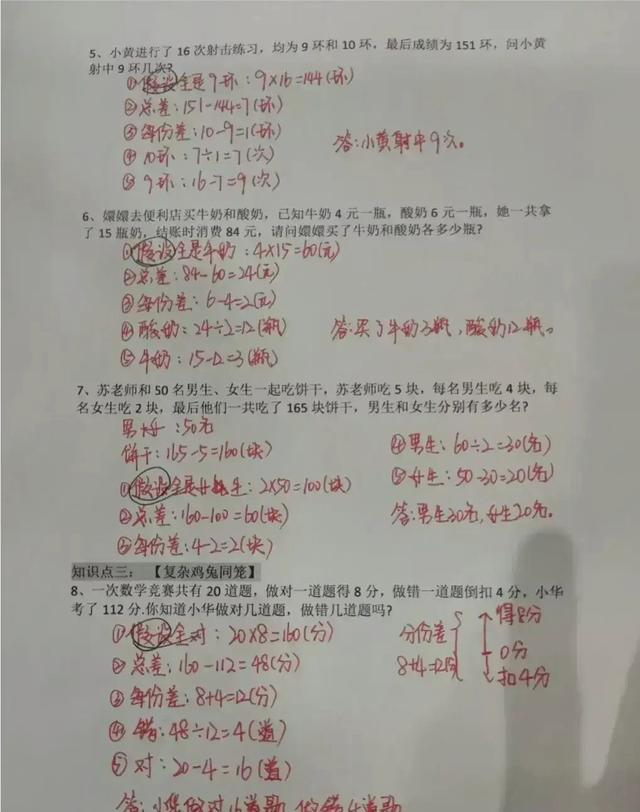 5、小黄进行了 16 次射击练习，均为 9 环和 10 环，最后成绩为 151 环，问小黄
射中 9 环几次？
①假设全是9环：9×16=144(环)
②总差：151-144=7(环)
③每份差：10-9=1(环)
④10环：7÷1=7(次)
⑤9环：16-7=9(次)
答：小黄射中9次。
6、嬛嬛去便利店买牛奶和酸奶，已知牛奶 4 元一瓶，酸奶 6 元一瓶，她一共拿
了 15 瓶奶，结账时消费 84 元，请问嬛嬛买了牛奶和酸奶各多少瓶？
①假设全是牛奶：4×15=60(元)
②总差：84-60=24(元)
③每份差：6-4=2(元)
④酸奶：24÷2=12(瓶)
⑤牛奶：15-12=3(瓶)
答：买了牛奶3瓶，酸奶12瓶。
7、苏老师和 50 名男生、女生一起吃饼干，苏老师吃 5 块，每名男生吃 4 块，每
名女生吃 2 块，最后他们一共吃了 165 块饼干，男生和女生分别有多少名？
男+女：50名
饼干：165-5=160(块)
①假设全是女生：2×50=100(块)
②总差：160-100=60(块)
③每份差：4-2=2(块)
④男生：60÷2=30(名)
⑤女生：50-30=20(名)
答：男生30名，女生20名。
知识点三：【复杂鸡兔同笼】
8、一次数学竞赛共有 20 道题，做对一道题得 8 分，做错一道题倒扣 4 分，小华
考了 112 分.你知道小华做对几道题，做错几道题吗？
①假设全对：20×8=160(分)
②总差：160-112=48(分)
③每份差：8+4=12(分)
④错：48÷12=4(道)
⑤对：20-4=16(道)
分份差
8+4=12分
得8分
0分
扣4分
答：小华做对16道题，做错4道题